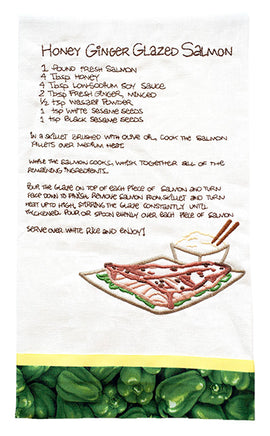 Honey Ginger Glazed Salmon
1 pound fresh salmon
4 Tbsp honey
4 Tbsp low-sodium soy sauce
2 Tbsp fresh ginger, minced
1/2 tsp wasabi powder
1 tsp white sesame seeds
1 tsp black sesame seeds
In a skillet brushed with olive oil, cook the salmon
fillets over medium heat.
While the salmon cooks, whisk together all of the
remaining ingredients.
Pour the glaze on top of each piece of salmon and turn
face down to finish. Remove salmon from skillet and turn
heat up to high, stirring the glaze constantly until
thickened. Pour or spoon evenly over each piece of salmon
Serve over white rice and enjoy!